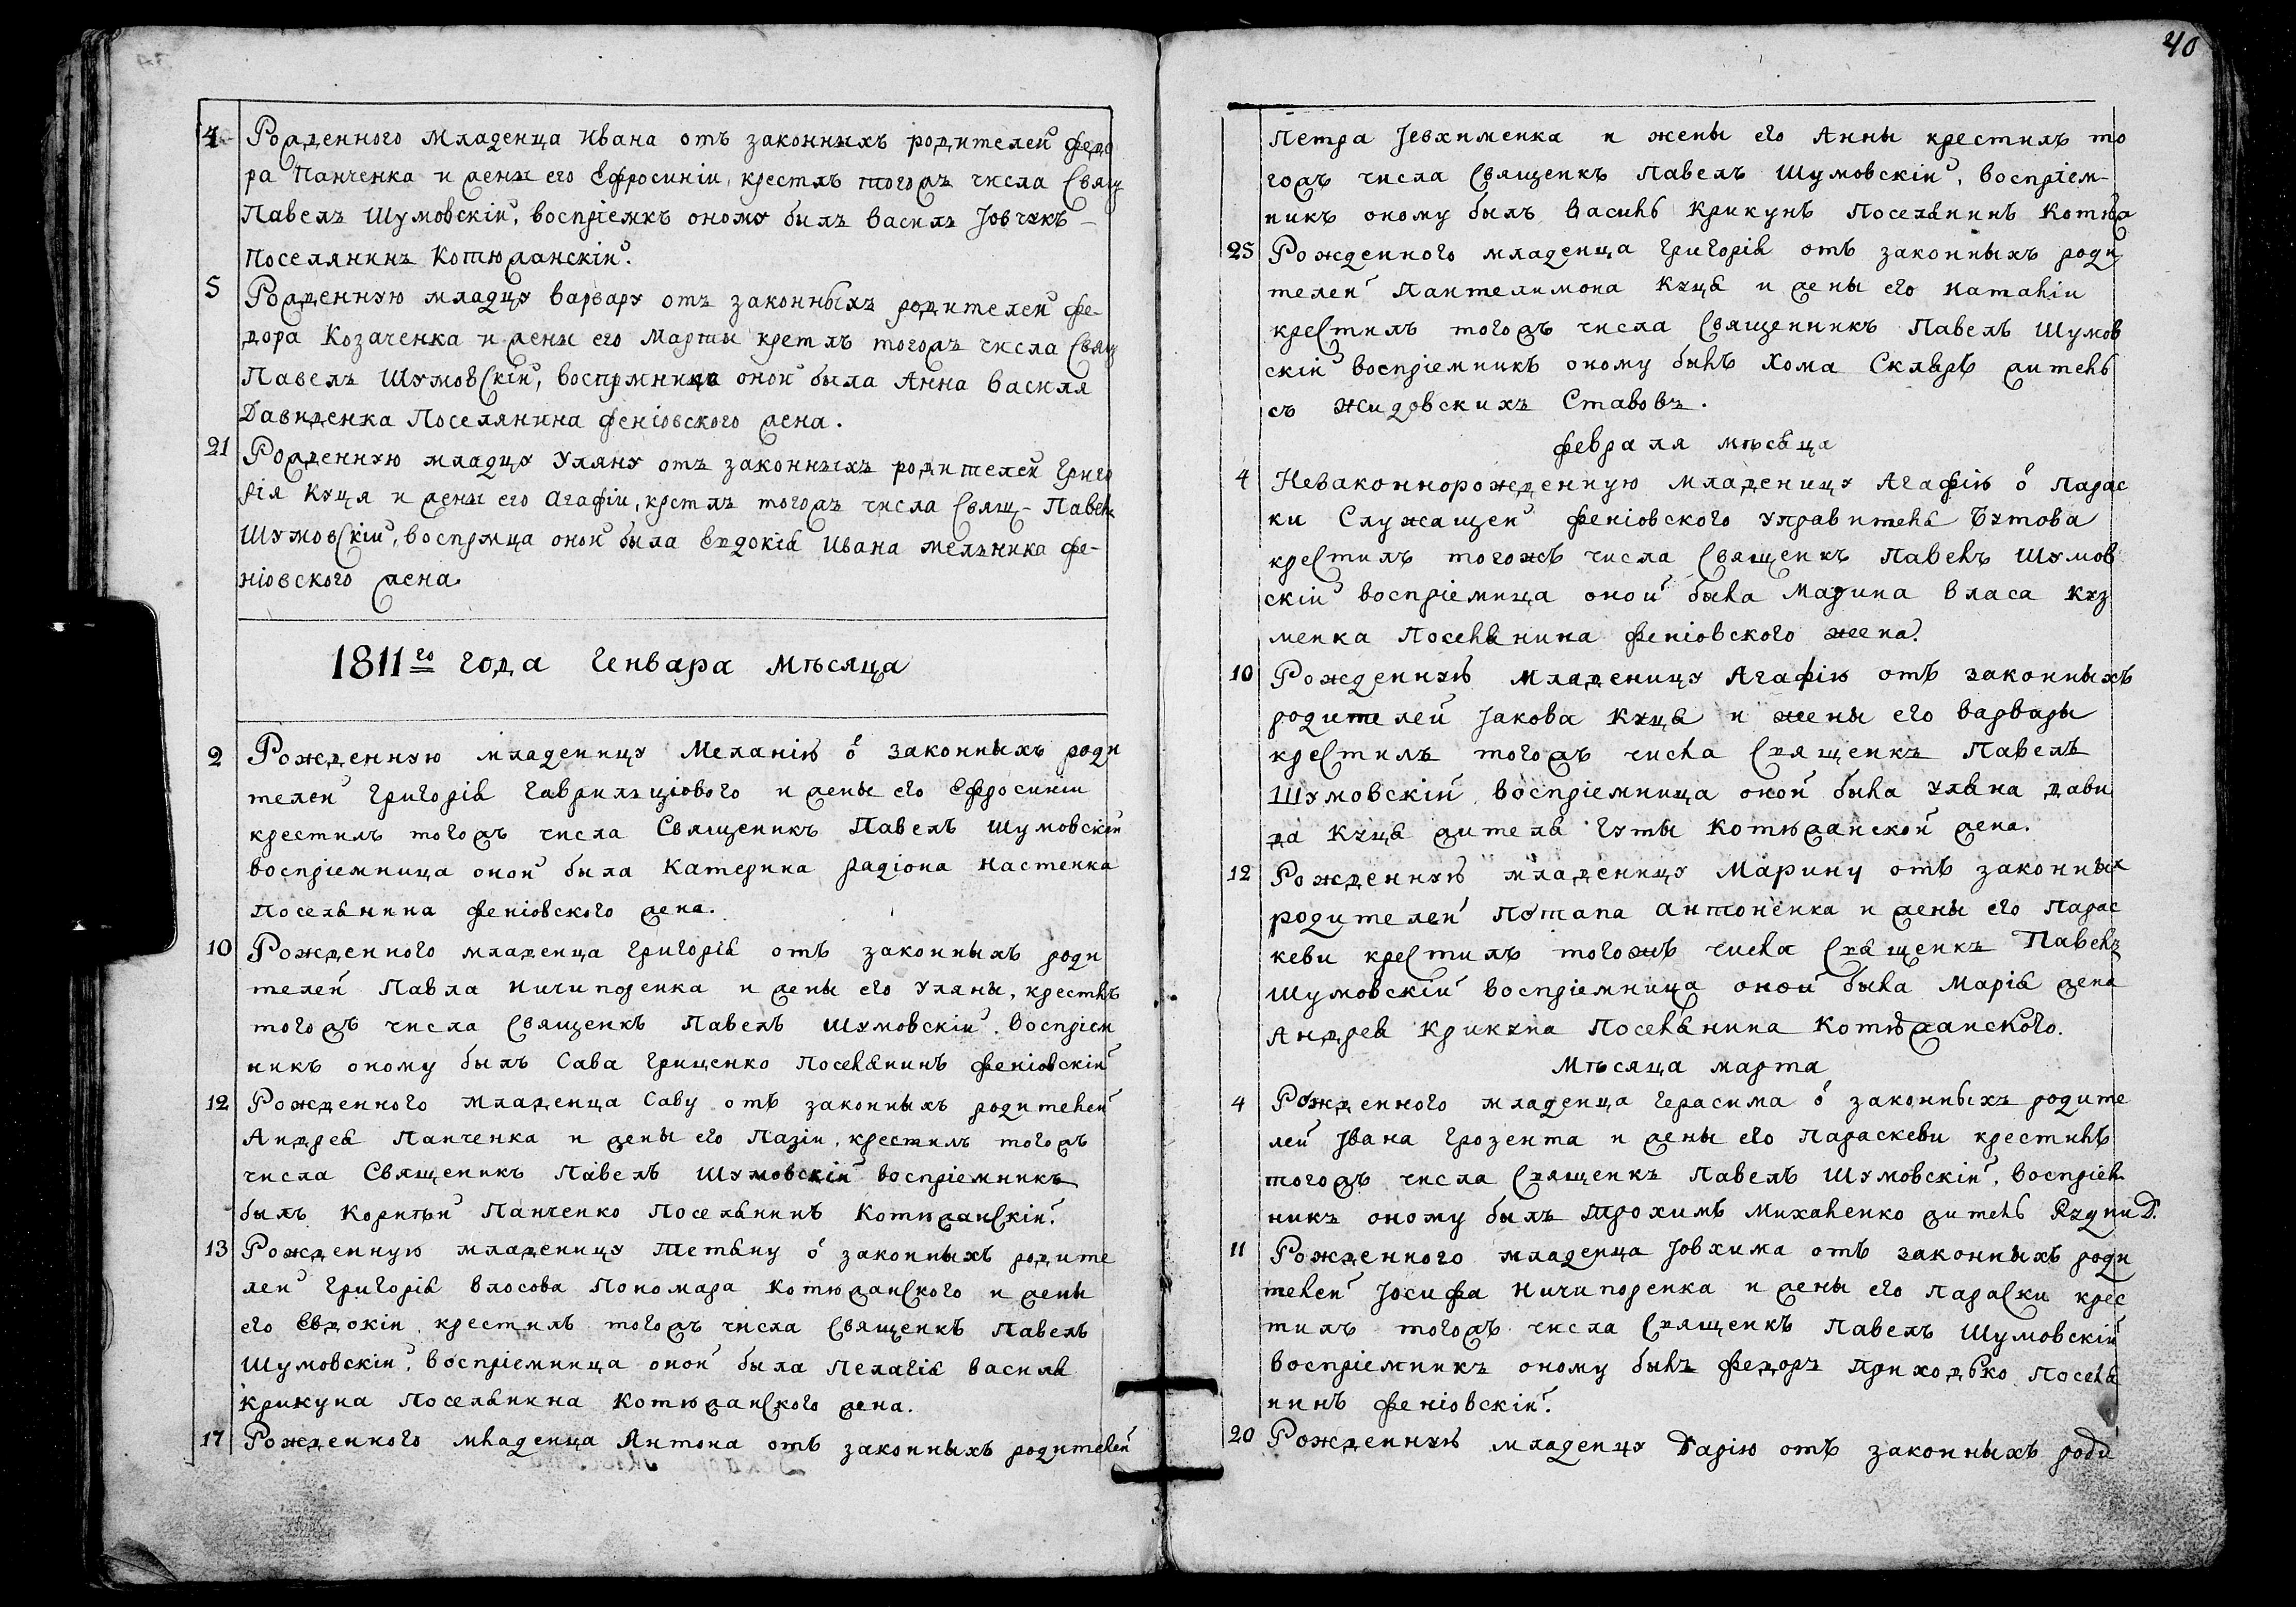 4 Рожденного Младенца Ивана отъ законныхъ родителей Федо
ра Панченка и жены его Ефросиніи, крестлъ тогожъ числа Свящ
Павелъ Шумовскій, воспріемкъ оному былъ Василъ Іовчукъ
Поселянинъ Котюжанскій.
5 Рожденную младцу Варвару отъ законныхъ родителей Фе-
дора Козаченка и жены его Марѳы кретлъ тогожъ числа Свящ
Павелъ Шумовскій, воспрмница оной была Анна Василя
Давиденка Поселянина Феніовского жена.
21 Рожденную младцу Уляну отъ законныхъ родителей Григо
рія Куця и жены его Агафіи, крстлъ тогожъ числа Свящ- Павелъ
Шумовскій, воспрмца оной была Евдокія Ивана мелъника Фе-
ніовского жена.
1811го года Генвара Мѣсяца
2 Рожденную младеницу Меланію ѿ законныхъ роди
телей Григорія Гаврилъціового и жены его Ефросиніи
крестилъ тогожъ числа Священикъ Павелъ Шумовскій
воспріемница оной была Катерина Радіона Настенка
Поселянина Феніовского жена.
10 Рожденного младенца Григорія отъ законныхъ роди
телей Павла Ничипоренка и жены его Уляны, крестилъ
тогожъ числа Священкъ Павелъ Шумовскій. Воспріем
никъ оному былъ Сава Гриценко Поселянинъ Феніовскій
12 Рожденного младенца Саву отъ законныхъ родителей
Андрея Панченка и жены его Пазіи, крестилъ тогожъ
числа Священикъ Павелъ Шумовскій воспріемникъ
былъ Корнѣй Панченко Поселянинъ Котюжанскій.
13 Рожденную младеницу Тетяну ѿ законныхъ родите
лей Григорія Влосова Пономара Котюжанского и жены
его Евдокіи крестилъ тогожъ числа Священкъ Павелъ
Шумовскій. воспріемница оной была Пелагія Василя
Крикуна Поселянина Котюжанского жена.
17 Рожденного младенца Антона отъ законныхъ родителей
40
Петра Іевхименка и жены его Анны крестилъ то
гожъ числа Священкъ Павелъ Шумовскій, воспріем-
никъ оному былъ Василь Крикунъ Поселянинъ Котюжа
25 Рожденного младенца Григорія отъ законныхъ роди
телей Пантелимона Куця и жены его Наталіи
крестилъ тогожъ числа Священникъ Павелъ Шумов
скій воспріемникъ оному былъ Хома Скляръ житель
съ Жидовскихъ Ставовъ.
Февраля мѣсяца
4 Незаконнорожденную младеницу Агафію ѿ Парас
ки Служащей Феніовского Управителя Бутова
крестилъ тогожъ числа Священкъ Павелъ Шумов
скій воспріемница оной была Марина Власа Куз
менка Поселянина Феніовского жена.
10 Рожденную младеницу Агафію отъ законныхъ
родителей Іакова Куця и жены его Варвары
крестилъ тогожъ числа Священкъ Павелъ
Шумовскій воспріемница оной была Уляна Дави
да Куця жителя Гуты Котюжанской жена.
12 Рожденную младеницу Марину отъ законных
родителей Потапа Антоненка и жены его Парас
кеви крестилъ тогожъ числа Священкъ Павелъ
Шумовскій воспріемница оной была Марія жена
Андрея Крикуна Поселянина Котюжанского.
Мѣсяца марта
4 Рожденного младенца Герасима ѿ законныхъ родите
лей Івана Грозента и жены его Параскеви крестилъ
тогожъ числа Священкъ Павелъ Шумовскій, воспріем
никъ оному былъ Трохимъ Михаленко житель
11 Рожденного младенца Іовхима отъ законныхъ роди
телей Іосифа Ничипоренка и жены его Параски крес
тилъ тогожъ числа Священкъ Павелъ Шумовскій
воспріемникъ оному былъ Федоръ Приходько Поселя
нинъ Феніовскій.
20 Рожденную младенцу Дарію отъ законныхъ роди